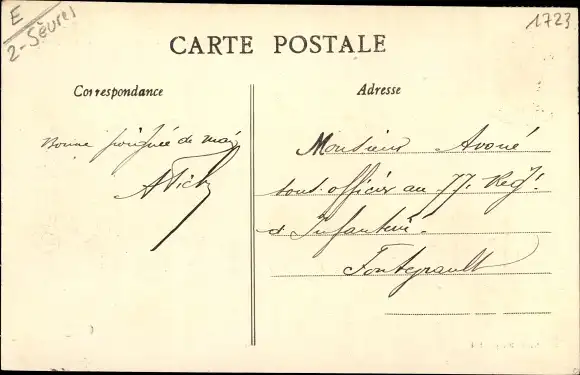 E
2-Sèvres
1723
CARTE POSTALE
Correspondance
Adresse
Bonne poignée de main
Monsieur Avoué
sous-officier au 77. Reg.t
d'Infanterie
Fontevrault